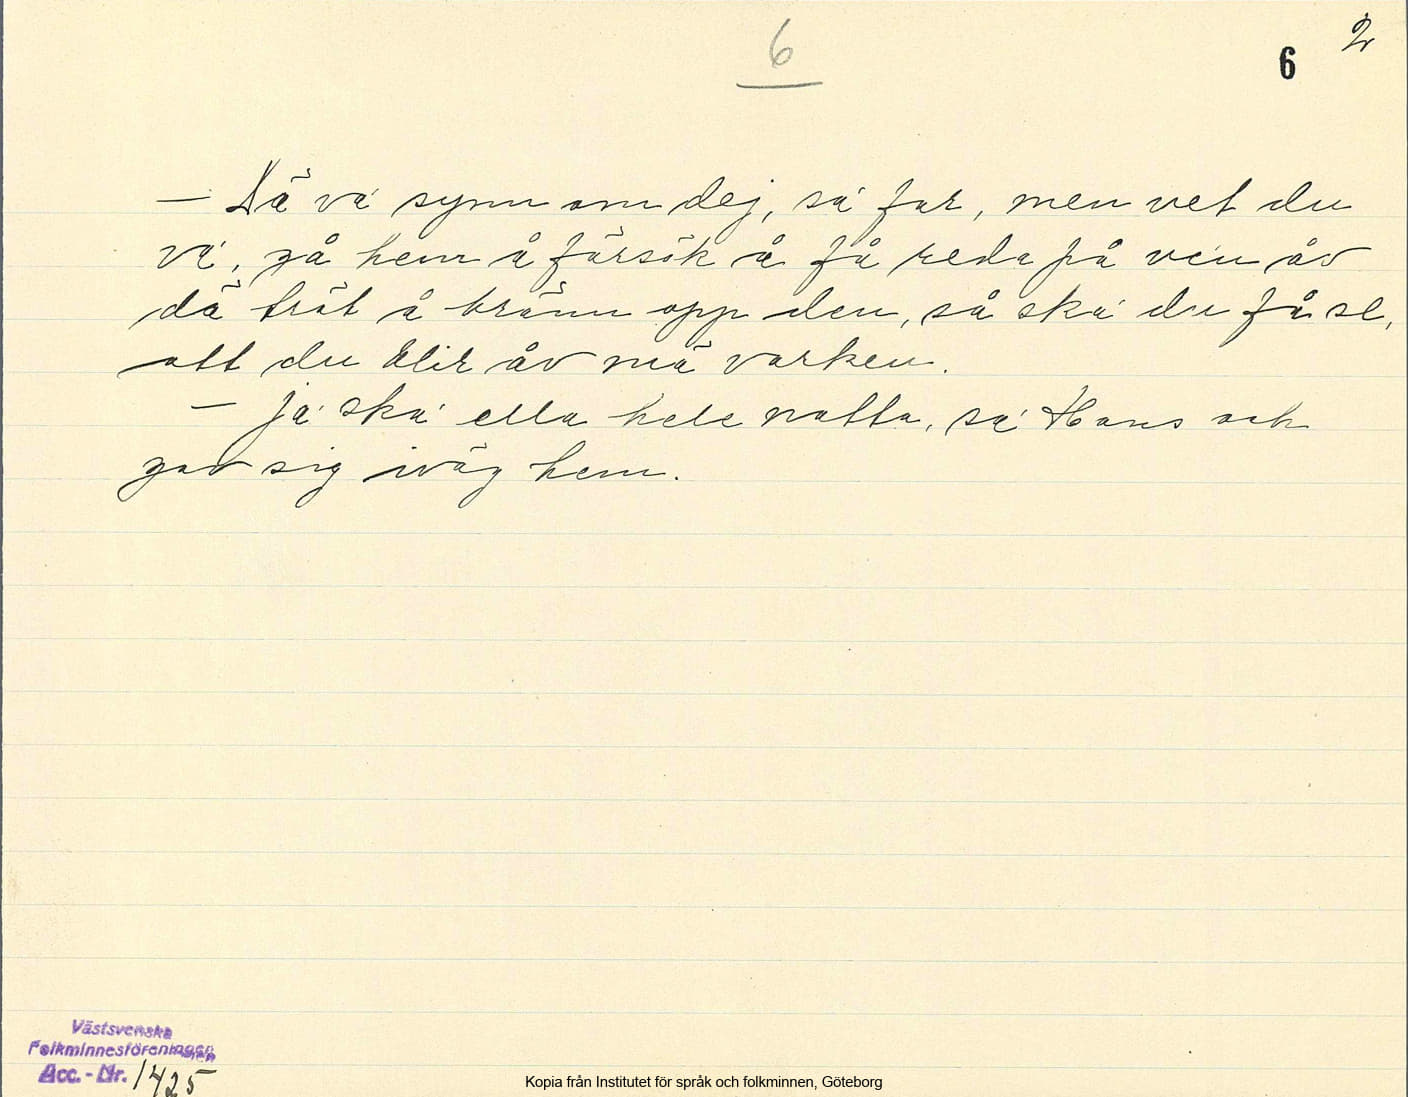 6
6
2
– Dä va' synn om dej, sa' far, men vet du
va', gå hem å försök å få reda på ven åv
dä trät å bränn opp den, så ska' du få se,
att du blir åv mä varken.
– ja' ska' ella hele natta, sa' Hans och
gav sig iväg hem.
Västsvenska
Folkminnesföreningen
Acc. - Nr. 1425
Kopia från Institutet för språk och folkminnen, Göteborg